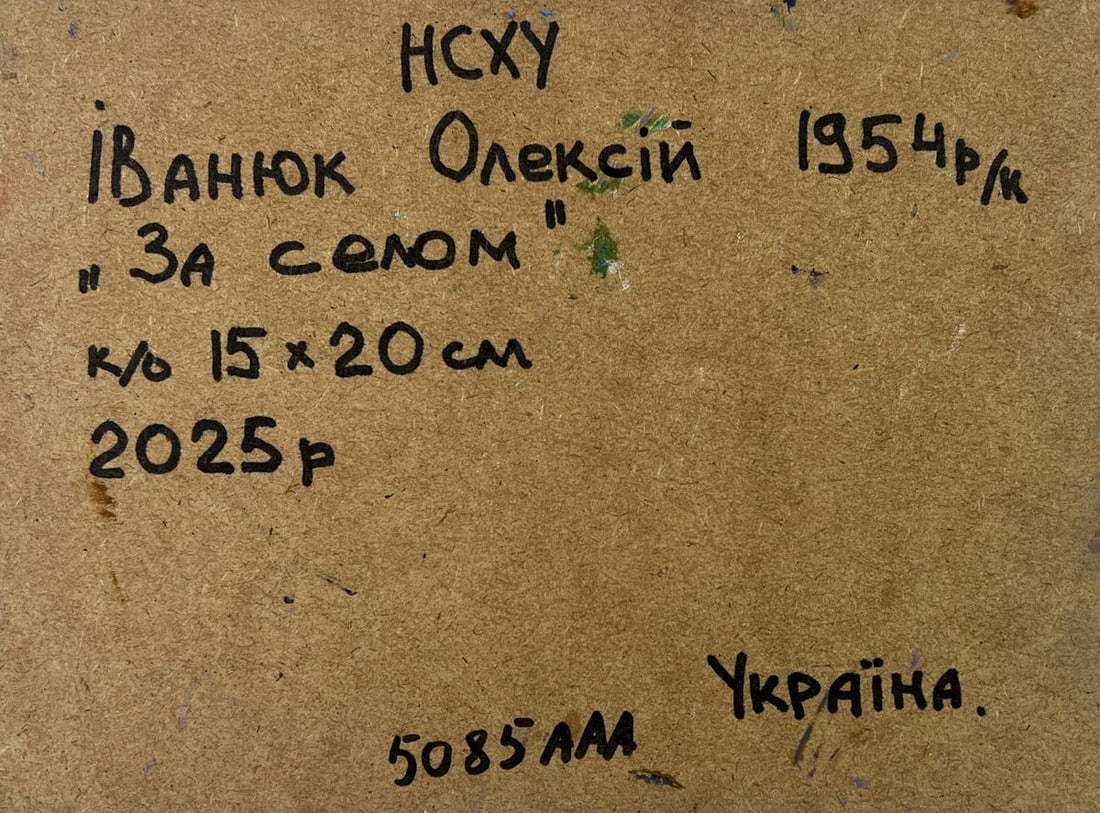 НСХУ
Іванюк Олексій 1954 р/н
„За селом"
к/о 15 х 20 см
2025 р
Україна.
5085 ААА